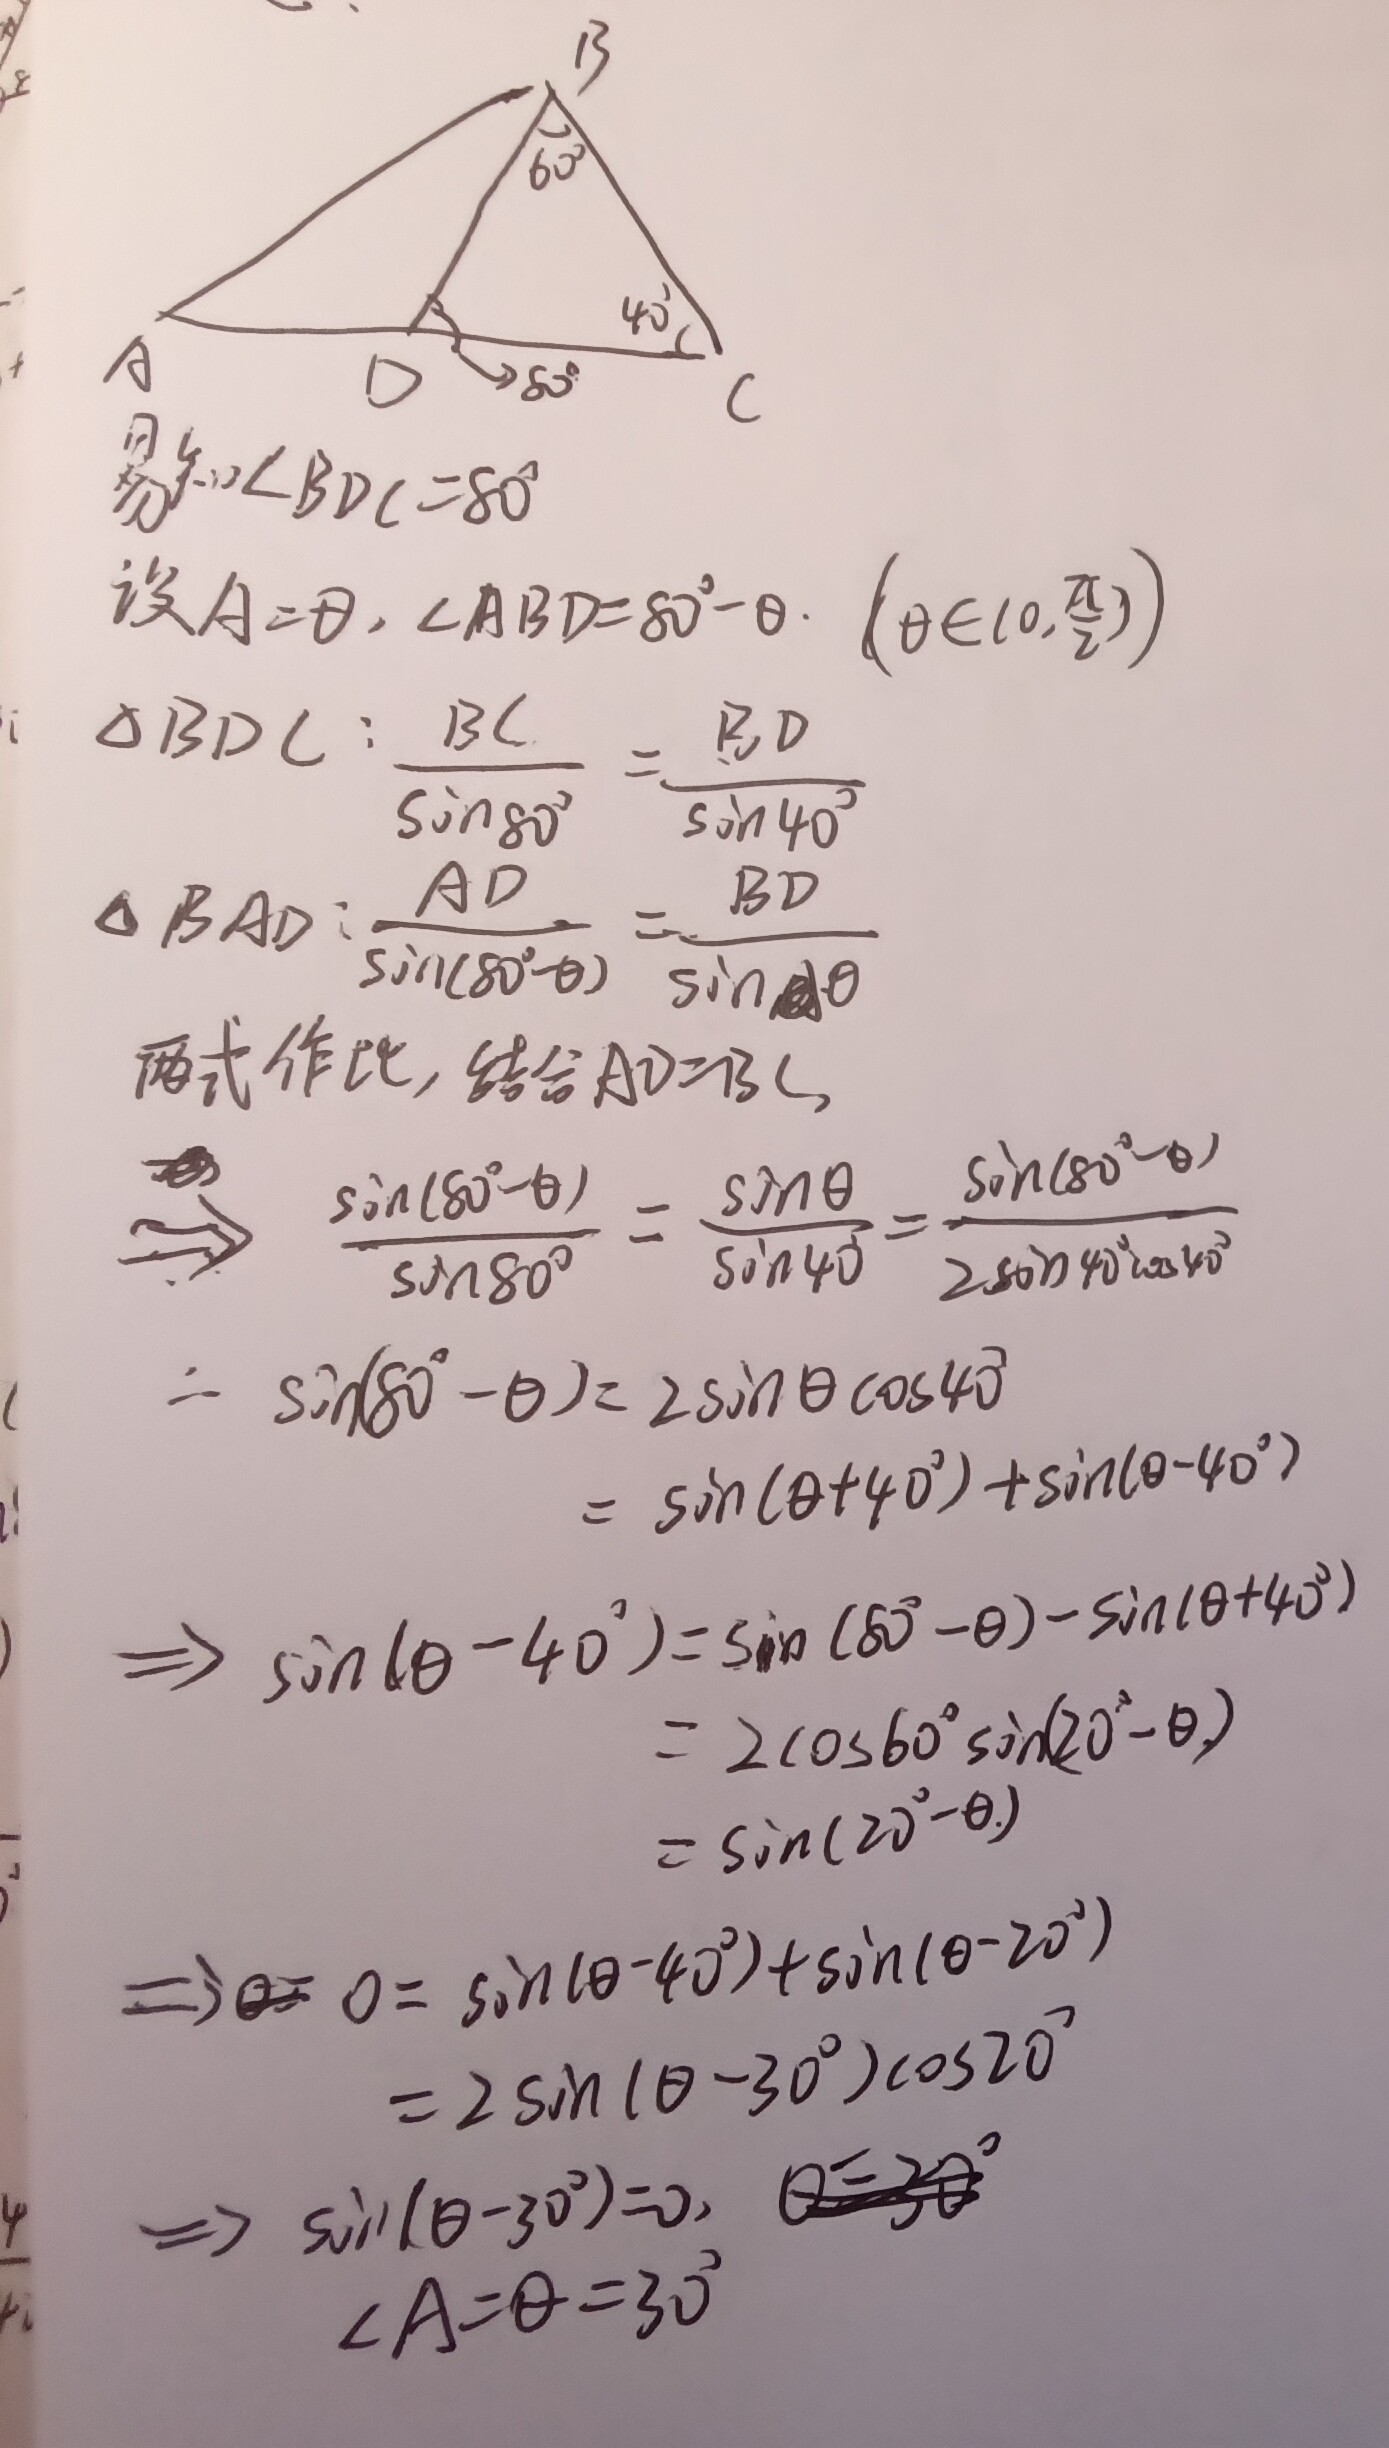 B
60°
40°
A
D
80°
C
易知∠BDC=80°
设A=θ, ∠ABD=80°-θ. (θ∈(0,π/2))
△BDC: BC/sin80° = BD/sin40°
△BAD: AD/sin(80°-θ) = BD/sinθ
两式作比, 结合AD=BC,
⇒ sin(80°-θ)/sin80° = sinθ/sin40° = sin(80°-θ)/2sin40°cos40°
∴ sin(80°-θ)=2sinθcos40°
= sin(θ+40°)+sin(θ-40°)
⇒ sin(θ-40°)=sin(80°-θ)-sin(θ+40°)
= 2cos60°sin(20°-θ)
= sin(20°-θ)
⇒ 0= sin(θ-40°)+sin(θ-20°)
= 2sin(θ-30°)cos20°
⇒ sin(θ-30°)=0,
∠A=θ=30°